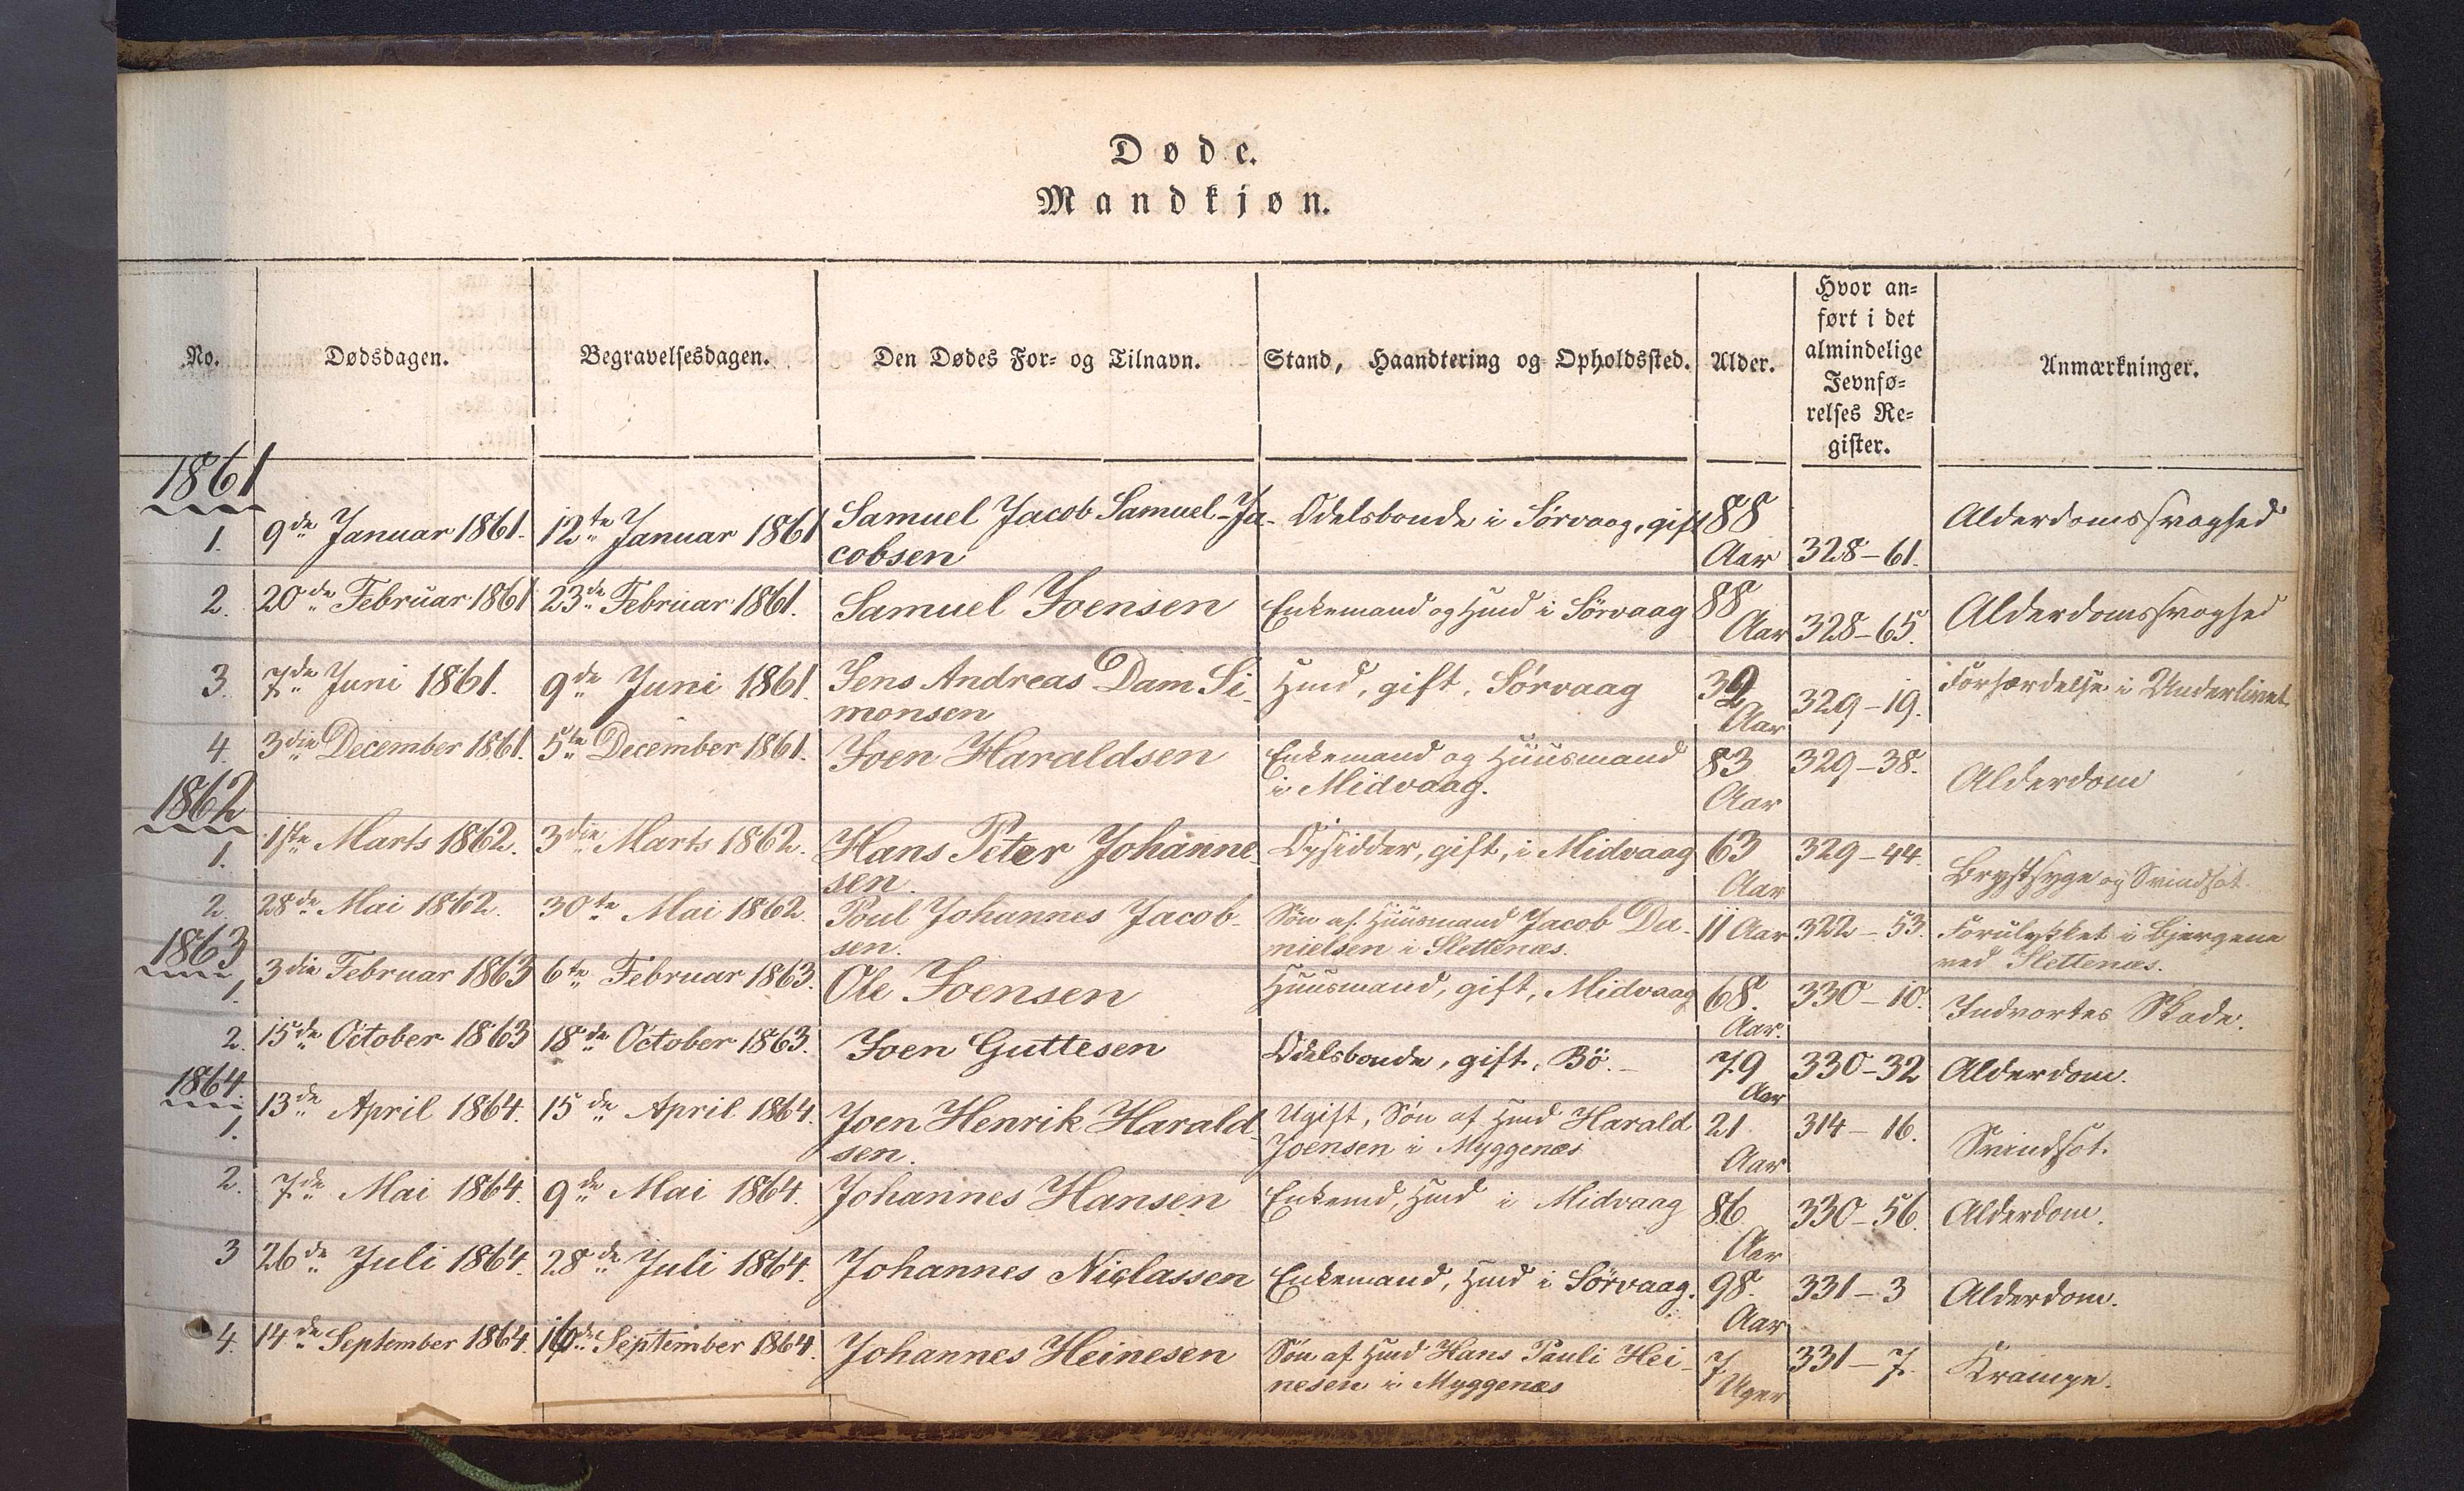 Døde.
Mandkjøn.
No. Dødsdagen. Begravelsesdagen. Den Dødes For- og Tilnavn. Stand, Haandtering og Opholdssted. Alder. Hvor an-
ført i det
almindelige
Jevnfø-
relses Re-
gister. Anmærkninger.
1861
1. 9de Januar 1861. 12te Januar 1861 Samuel Jacob Samuel-Ja- Odelsbonde i Sörvaag, gift 88 Alderdomssvaghed
cobsen Aar 328-61.
2. 20de Februar 1861 23de Februar 1861. Samuel Joensen Enkemand og Hmd i Sörvaag 88 Alderdomssvaghed
Aar 328-65.
3. 7de Juni 1861. 9de Juni 1861. Jens Andreas Dam Si- Hmd, gift, Sörvaag 329-19. Forhærdelse i Underlivet.
monsen Aar
4. 3die December 1861. 5te December 1861. Joen Haraldsen Enkemand og Huusmand 83 329-38. Alderdom
i Midvaag. Aar
1862
1. 1ste Marts 1862. 3die Marts 1862. Hans Peter Johanne- Opsidder, gift, i Midvaag 63 329-44. Brystsyge og Svindsot.
sen. Aar
2. 28de Mai 1862. 30te Mai 1862. Poul Johannes Jacob- Sön af Huusmand Jacob Da- 11 Aar 322-53. Forulykket i Bjergene
sen. nielsen i Slettenæs. ved Slettenæs.
1863
1. 3die Februar 1863 6te Februar 1863. Ole Joensen Huusmand, gift, Midvaag 68. 330-10. Indvortes Skade.
Aar.
2. 15de October 1863 18de October 1863. Joen Guttesen Odelsbonde, gift, Bö. 79 330-32 Alderdom.
Aar
1864.
1. 13de April 1864. 15de April 1864. Joen Henrik Harald- Ugift, Sön af Hmd Harald 21 314-16. Svindsot.
sen. Joensen i Myggenæs Aar
2. 7de Mai 1864. 9de Mai 1864. Johannes Hansen Enkemd, Hmd i Midvaag 86. 330-56. Alderdom.
Aar
3 26de Juli 1864. 28de Juli 1864. Johannes Niclassen Enkemand, Hmd i Sörvaag. 98. 331-3 Alderdom.
Aar
4. 14de September 1864. September 1864. Johannes Heinesen Sön af Hmd Hans Pauli Hei- 7 331-7. Krampe.
nesen i Myggenæs Uger